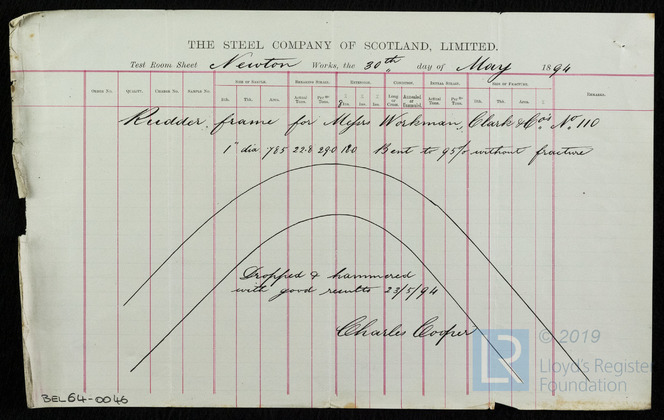 THE STEEL COMPANY OF SCOTLAND, LIMITED.
Test Room Sheet Newton Works, the 30th day of May 1894
SIZE OF SAMPLE. BREAKING STRAIN. EXTENSION. CONDITION. INITIAL STRAIN. SIZE OF FRACTURE.
ORDER NO. QUALITY. CHARGE NO. SAMPLE NO. Bth. Tth. Area. Actual Tons. Per □" Tons. 8 Ins. Ins. Ins. Long or Cross. Annealed or Unannealed. Actual Tons. Per □" Tons. Bth. Tth. Area. REMARKS.
Rudder frame for Messrs Workman, Clark & Co's No. 110
1" dia .785 22.8 29.0 18.0 Bent to 95/° without fracture
Dropped & hammered
with good results 23/5/94
Charles Cooper
© 2019
Lloyd's Register
Foundation
BEL64-0046